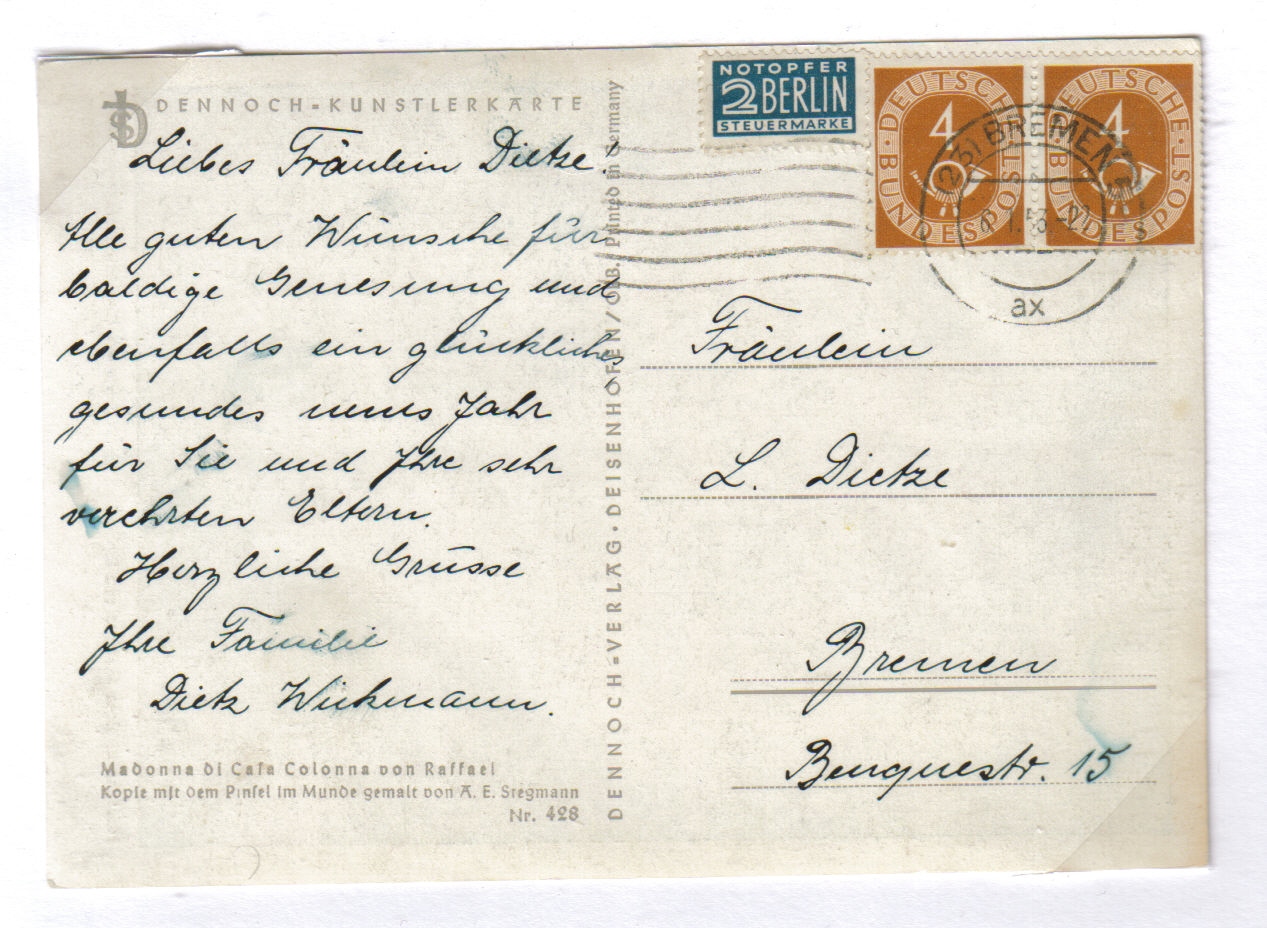 DENNOCH-KUNSTLERKARTE
Liebes Fräulein Dietze!
Alle guten Wünsche für
baldige Genesung und
ebenfalls ein glückliches
gesundes neues Jahr
für Sie und Ihre sehr
verehrten Eltern.
Herzliche Grüsse
Ihre Familie
Dietz Wickmann.
Madonna di Casa Colonna von Raffael
Kopie mit dem Pinsel im Munde gemalt von A. E. Stegmann
Nr. 428
DENNOCH-VERLAG · DEISENHOFEN/OBB. Printed in Germany
NOTOPFER
2 BERLIN
STEUERMARKE
DEUTSCHE BUNDESPOST
4
DEUTSCHE BUNDESPOST
4
(23) BREMEN
6.1.53
ax
Fräulein
L. Dietze
Bremen
Benquestr. 15